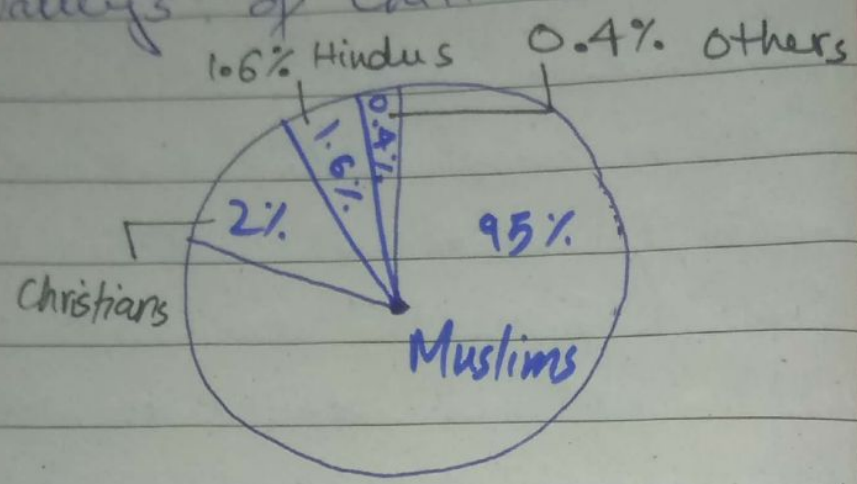 of
1.6% Hindus
0.4% others
0.4%
1.6%
2%
95%
Christians
Muslims